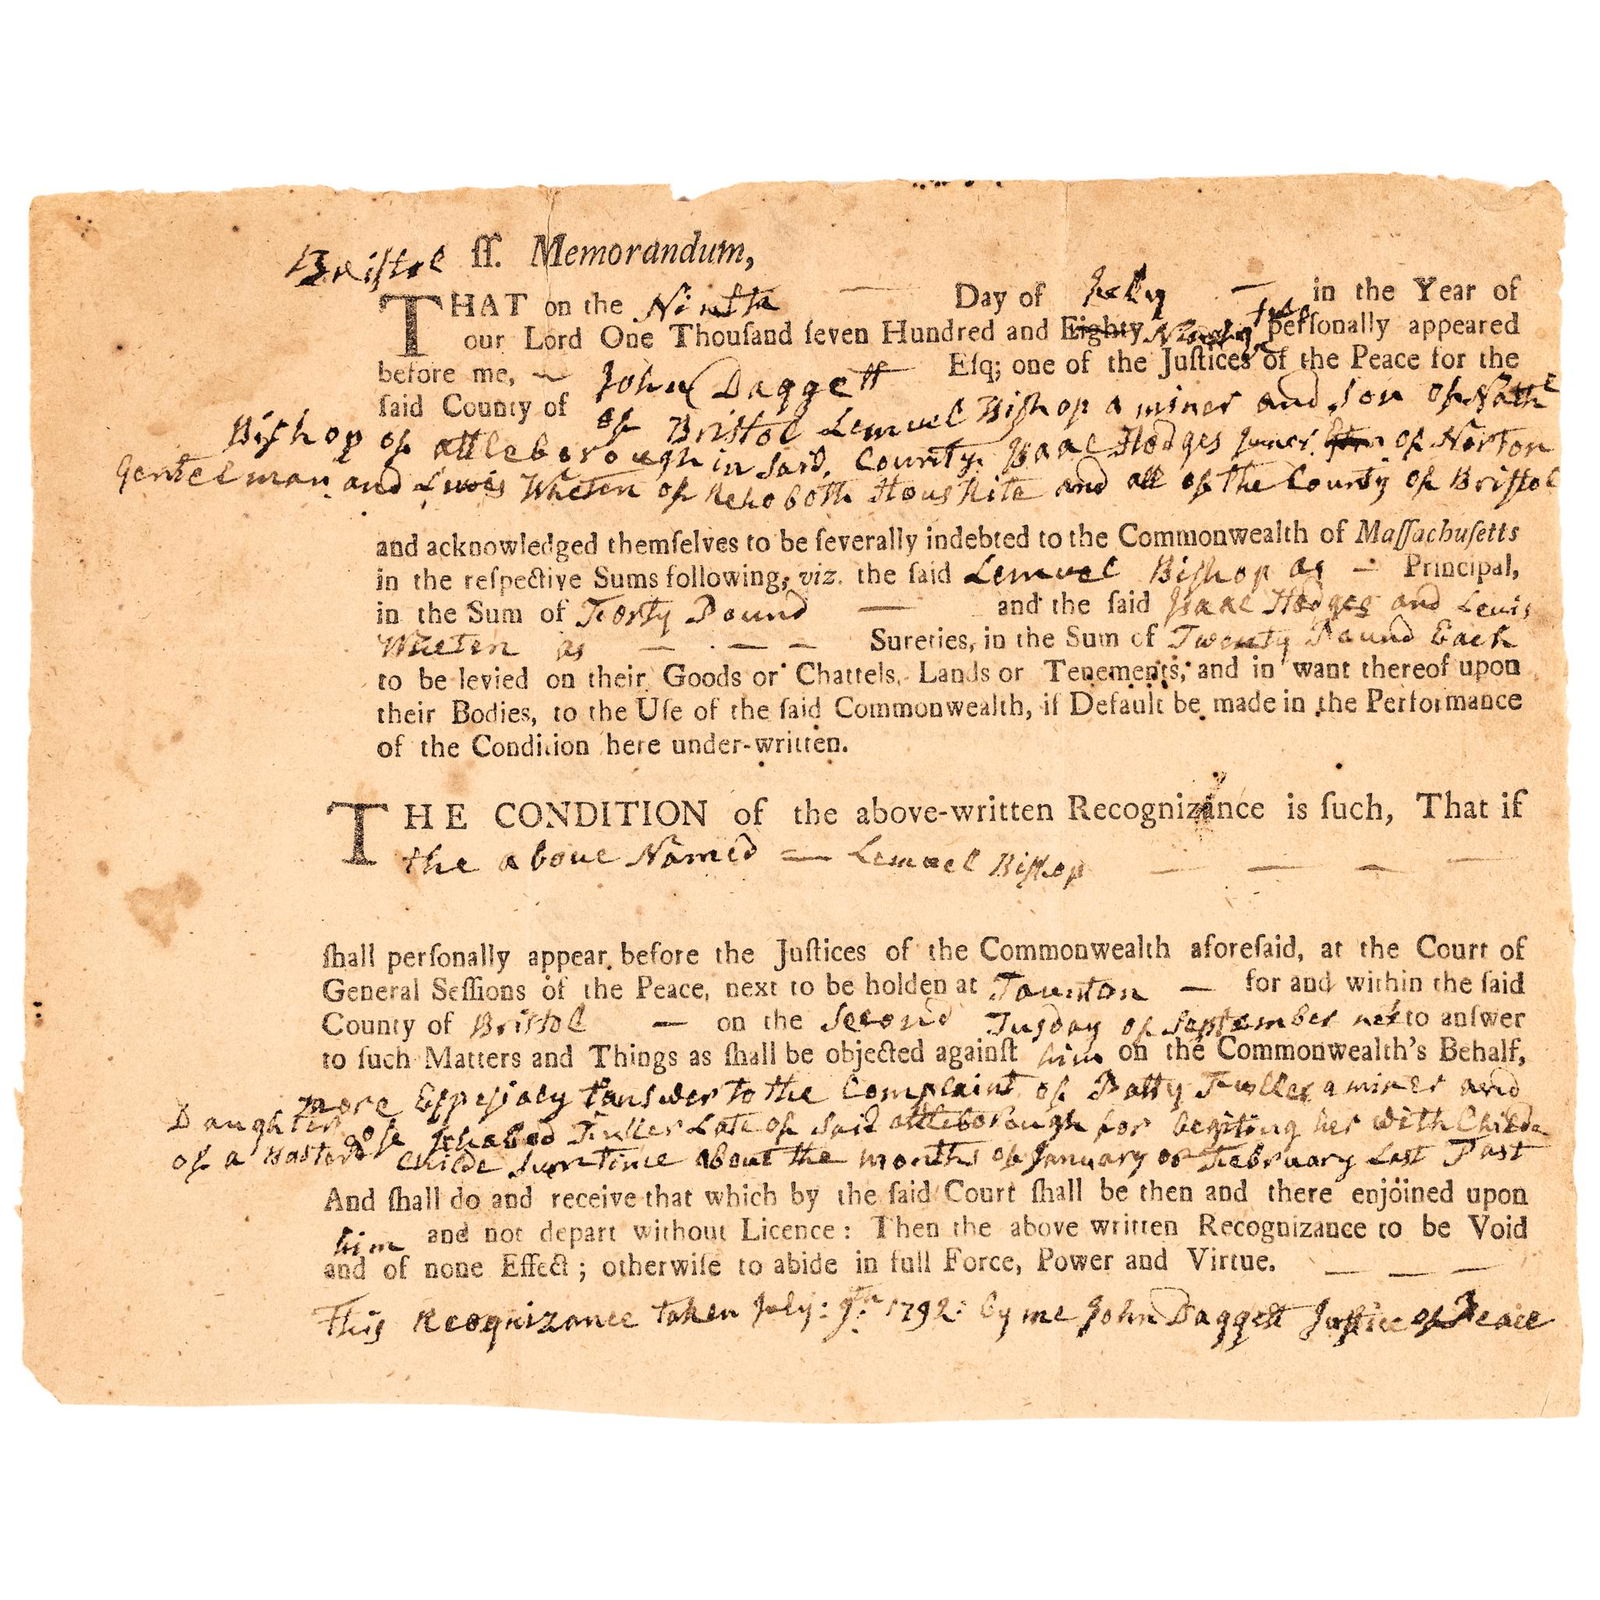 Bristol ſſ. Memorandum,
THAT on the Ninth Day of July — in the Year of
our Lord One Thouſand ſeven Hundred and Eighty Ninety Two perſonally appeared
before me, — John Daggett Eſq; one of the Juſtices of the Peace for the
ſaid County of of Bristol Lemuel Biſhop a miner and Son of Nathl
Biſhop of attleborough in Said County Iſaac Hodges juner of Norton
Gentelman and Lewis Wheten of Rehoboth Houſrite and all of the County of Briſtol
and acknowledged themſelves to be ſeverally indebted to the Commonwealth of Maſſachuſetts
in the reſpective Sums following, viz. the ſaid Lemuel Biſhop as — Principal,
in the Sum of Forty Pound — and the ſaid Iſaac Hodges and Lewis
Wheten as — . — — Sureties, in the Sum of Twenty Pound Each
to be levied on their Goods or Chattels, Lands or Tenements; and in want thereof upon
their Bodies, to the Uſe of the ſaid Commonwealth, if Default be made in the Performance
of the Condition here under-written.
THE CONDITION of the above-written Recognizance is ſuch, That if
the above Named — Lemuel Biſhop — — — —
ſhall perſonally appear before the Juſtices of the Commonwealth aforeſaid, at the Court of
General Seſſions of the Peace, next to be holden at Taunton — for and within the ſaid
County of Bristol — on the Second Tusday of September next to anſwer
to ſuch Matters and Things as ſhall be objected againſt him on the Commonwealth's Behalf,
more Eſpeſialy tanswer to the Complaint of Patty Fuller a miner and
Daughter of Ichabod Fuller Late of Said attleborough for begiting her with Childe
of a Basterd Childe Sumtime about the months of January or February Last Past
And ſhall do and receive that which by the ſaid Court ſhall be then and there enjoined upon
him and not depart without Licence: Then the above written Recognizance to be Void
and of none Effect; otherwiſe to abide in full Force, Power and Virtue. — — —
This Recognizance taken July: 9th: 1792: by me John Daggett Juſtice of Peace